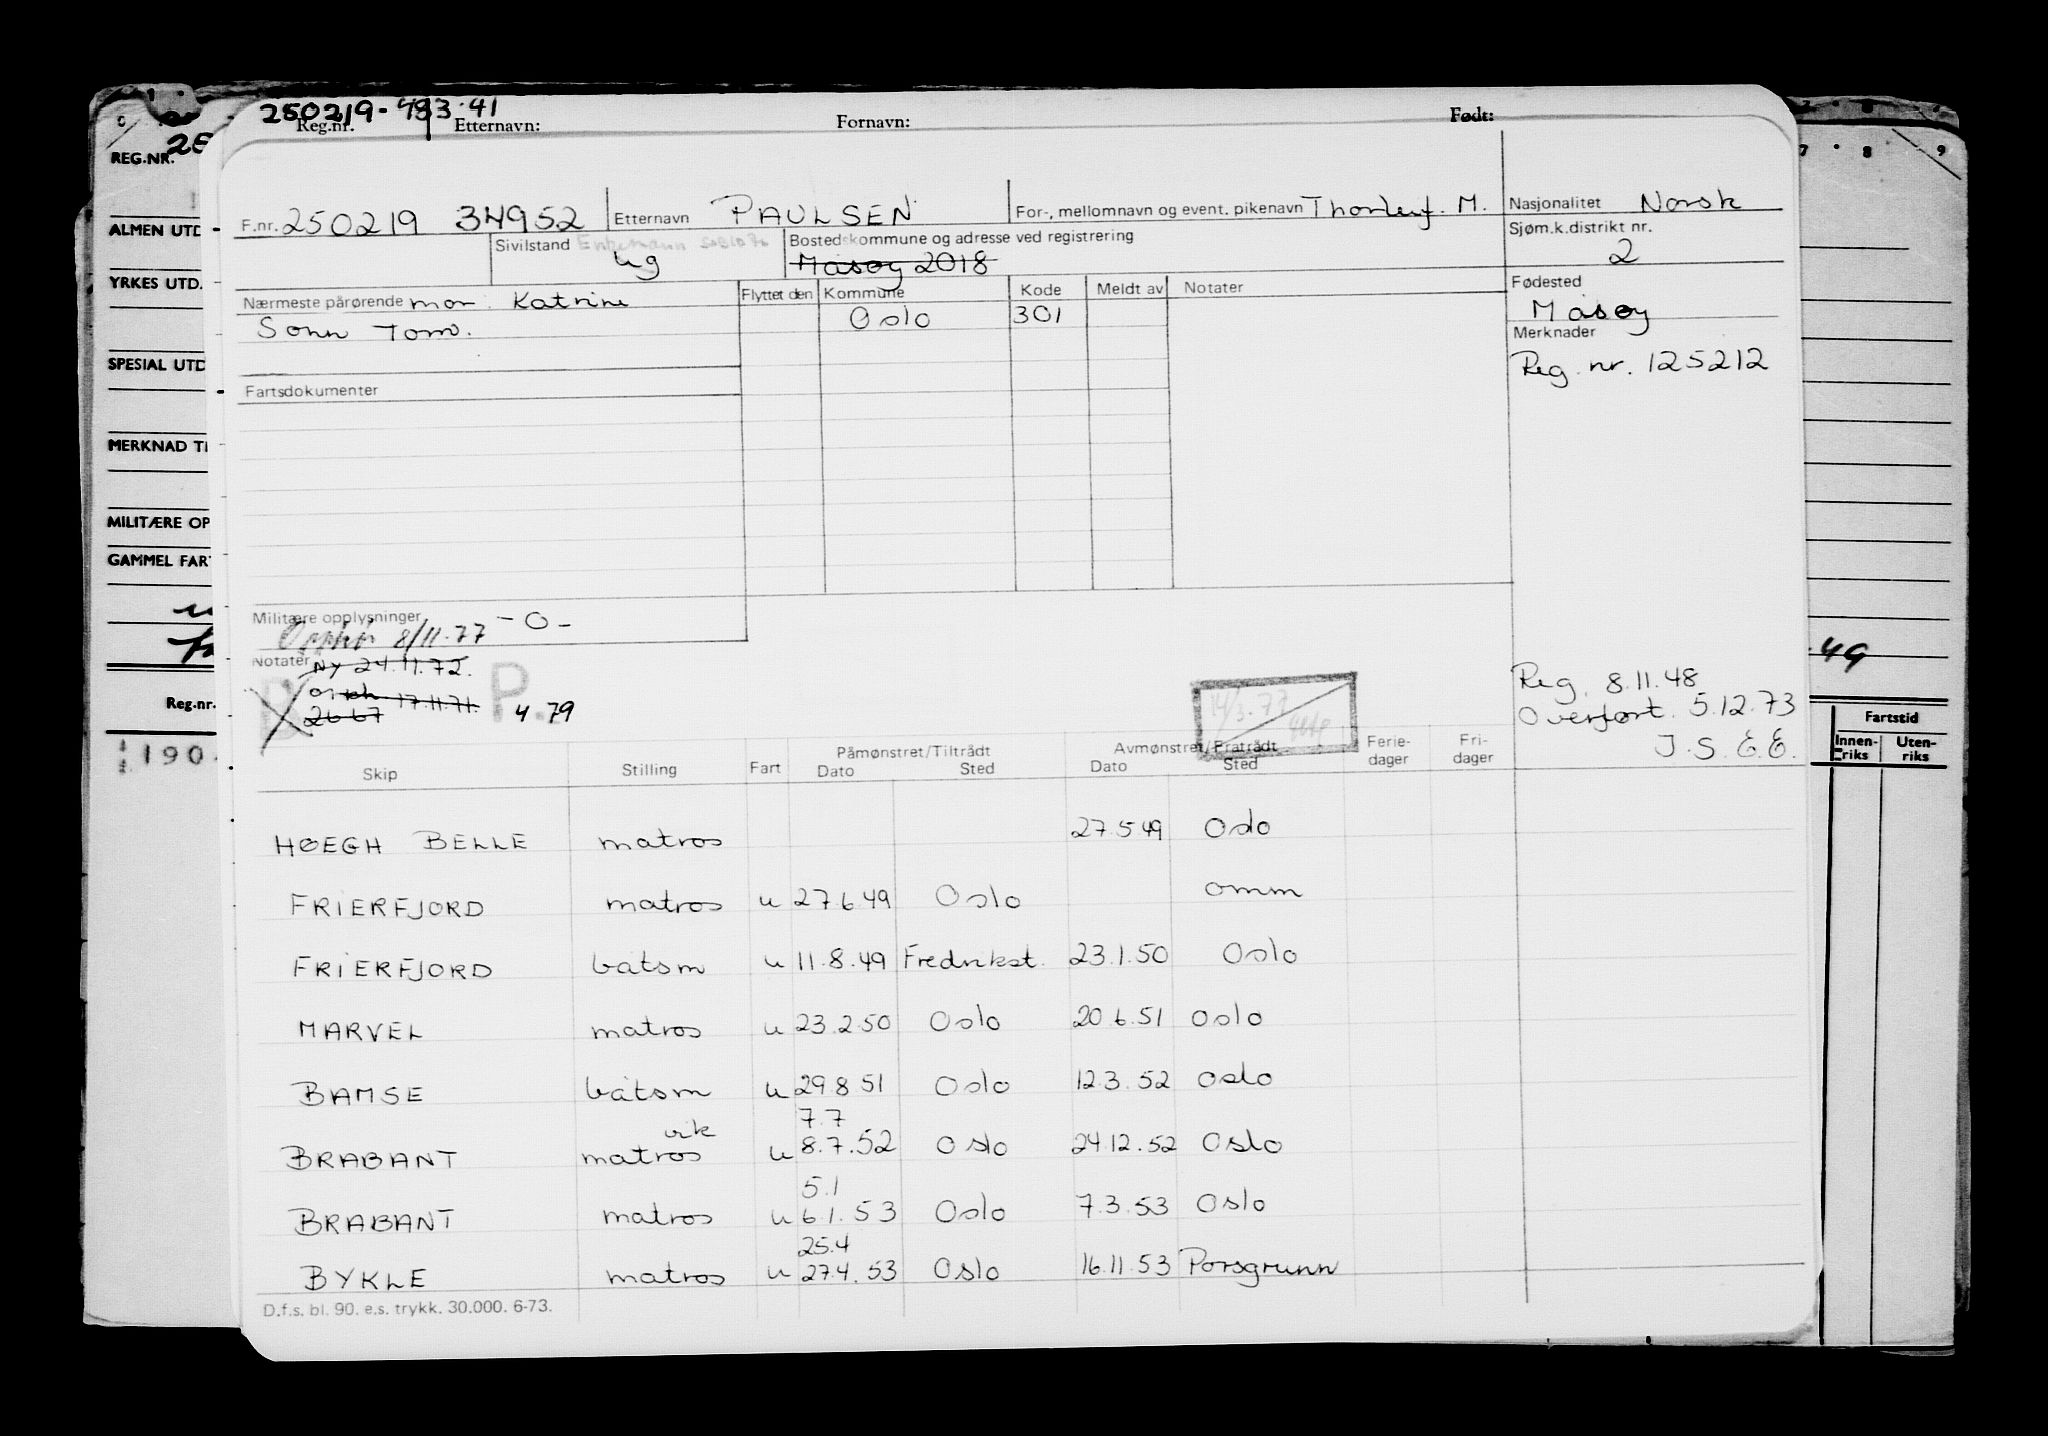 250219-483.41
Reg.nr. Etternavn: Fornavn: Født:
REG.NR. 25
ALMEN UTD
YRKES UTD.
SPESIAL UTD
MERKNAD TI
MILITÆRE OP
GAMMEL FART
Reg.nr.
190
7 8 9
49
Fartstid
Innen-riks Uten-riks
F.nr. 250219 34952 Etternavn PAULSEN For-, mellomnavn og event. pikenavn Thorleif. M. Nasjonalitet Norsk
Sivilstand Enkemann ug Bostedskommune og adresse ved registrering Måsøy 2018 Sjøm.k.distrikt nr. 2
Nærmeste pårørende mor: Katrine Flyttet den Kommune Kode Meldt av Notater Fødested
Sønn Tom. Oslo 301 Måsøy
Merknader
Reg. nr. 125212
Fartsdokumenter
Militære opplysninger -0-
Opphør 8/11.77
Notater Ny 24.11.72.
17.11.71.
2667
B P. 4.79
14/3.77
Reg. 8.11.48
Overført. 5.12.73
J.S.E.E.
Skip Stilling Fart Påmønstret/Tiltrådt Dato Sted Avmønstret/Fratrådt Dato Sted Ferie-dager Fri-dager
HØEGH BELLE matros 27.5 49 Oslo
FRIERFJORD matros u 27.6.49 Oslo omm
FRIERFJORD båtsm u 11.8.49 Fredrikst. 23.1.50 Oslo
MARVEL matros u 23.2.50 Oslo 20.6.51 Oslo
BAMSE båtsm u 29.8 51 Oslo 12.3.52 Oslo
vik 7.7
BRABANT matros u 8.7.52 Oslo 24.12.52 Oslo
5.1
BRABANT matros u 6.1.53 Oslo 7.3.53 Oslo
25.4
BYKLE matros u 27.4.53 Oslo 16.11.53 Porsgrunn
D.f.s. bl. 90. e.s. trykk. 30.000. 6-73.